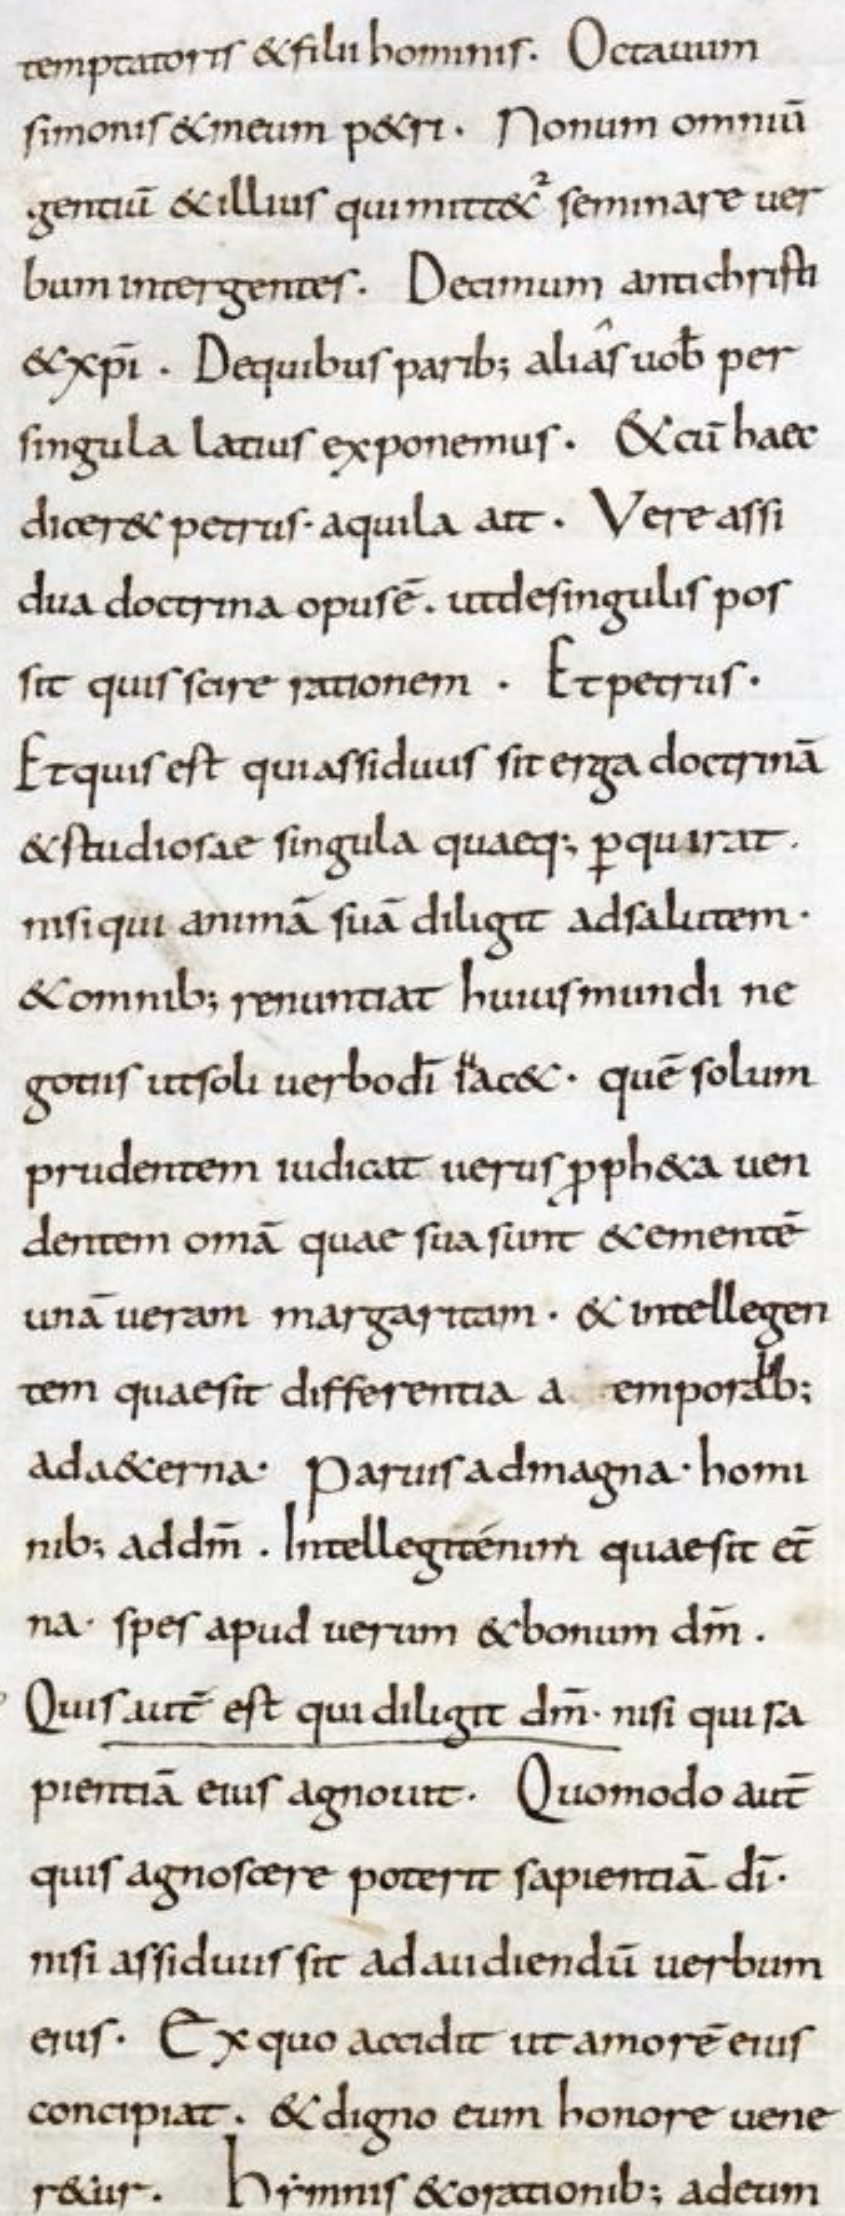 temptatoris & filii hominis. Octauum
simonis & meum p&ri. Nonum omniū
gentiū & illius qui mitt&² seminare uer
bum inter gentes. Decimum antichristi
& xp̄i. De quibus parib; aliâs uob̄ per
singula latius exponemus. & cū haec
dicer& petrus· aquila ait. Vere assi
dua doctrina opus ē. ut de singulis pos
sit quis scire rationem. Et petrus·
Et quis est qui assiduus sit erga doctrinā
& studiosae singula quaeq; ꝑquirat.
nisi qui animā suā diligit ad salutem·
& omnib; renuntiat huius mundi ne
gotiis ut soli uerbo dī uac&· quē solum
prudentem iudicat uerus ꝓph&a uen
dentem omā quae sua sunt & ementē
unā ueram margaritam· & intellegen
tem quae sit differentia a emporalib;
ad a&erna· Paruis ad magna· homi
nib; ad dm̄. Intellegit énim quae sit et̄
na· spes apud uerum & bonum dm̄.
Quis aut̄ est qui diligit dm̄· nisi qui sa
pientiā eius agnouit· Quomodo aut̄
quis agnoscere poterit sapientiā dī·
nisi assiduus sit ad audiendū uerbum
eius· Ex quo accidit ut amorē eius
concipiat. & digno eum honore uene
r&ur. hẏmnis & orationib; ad eum